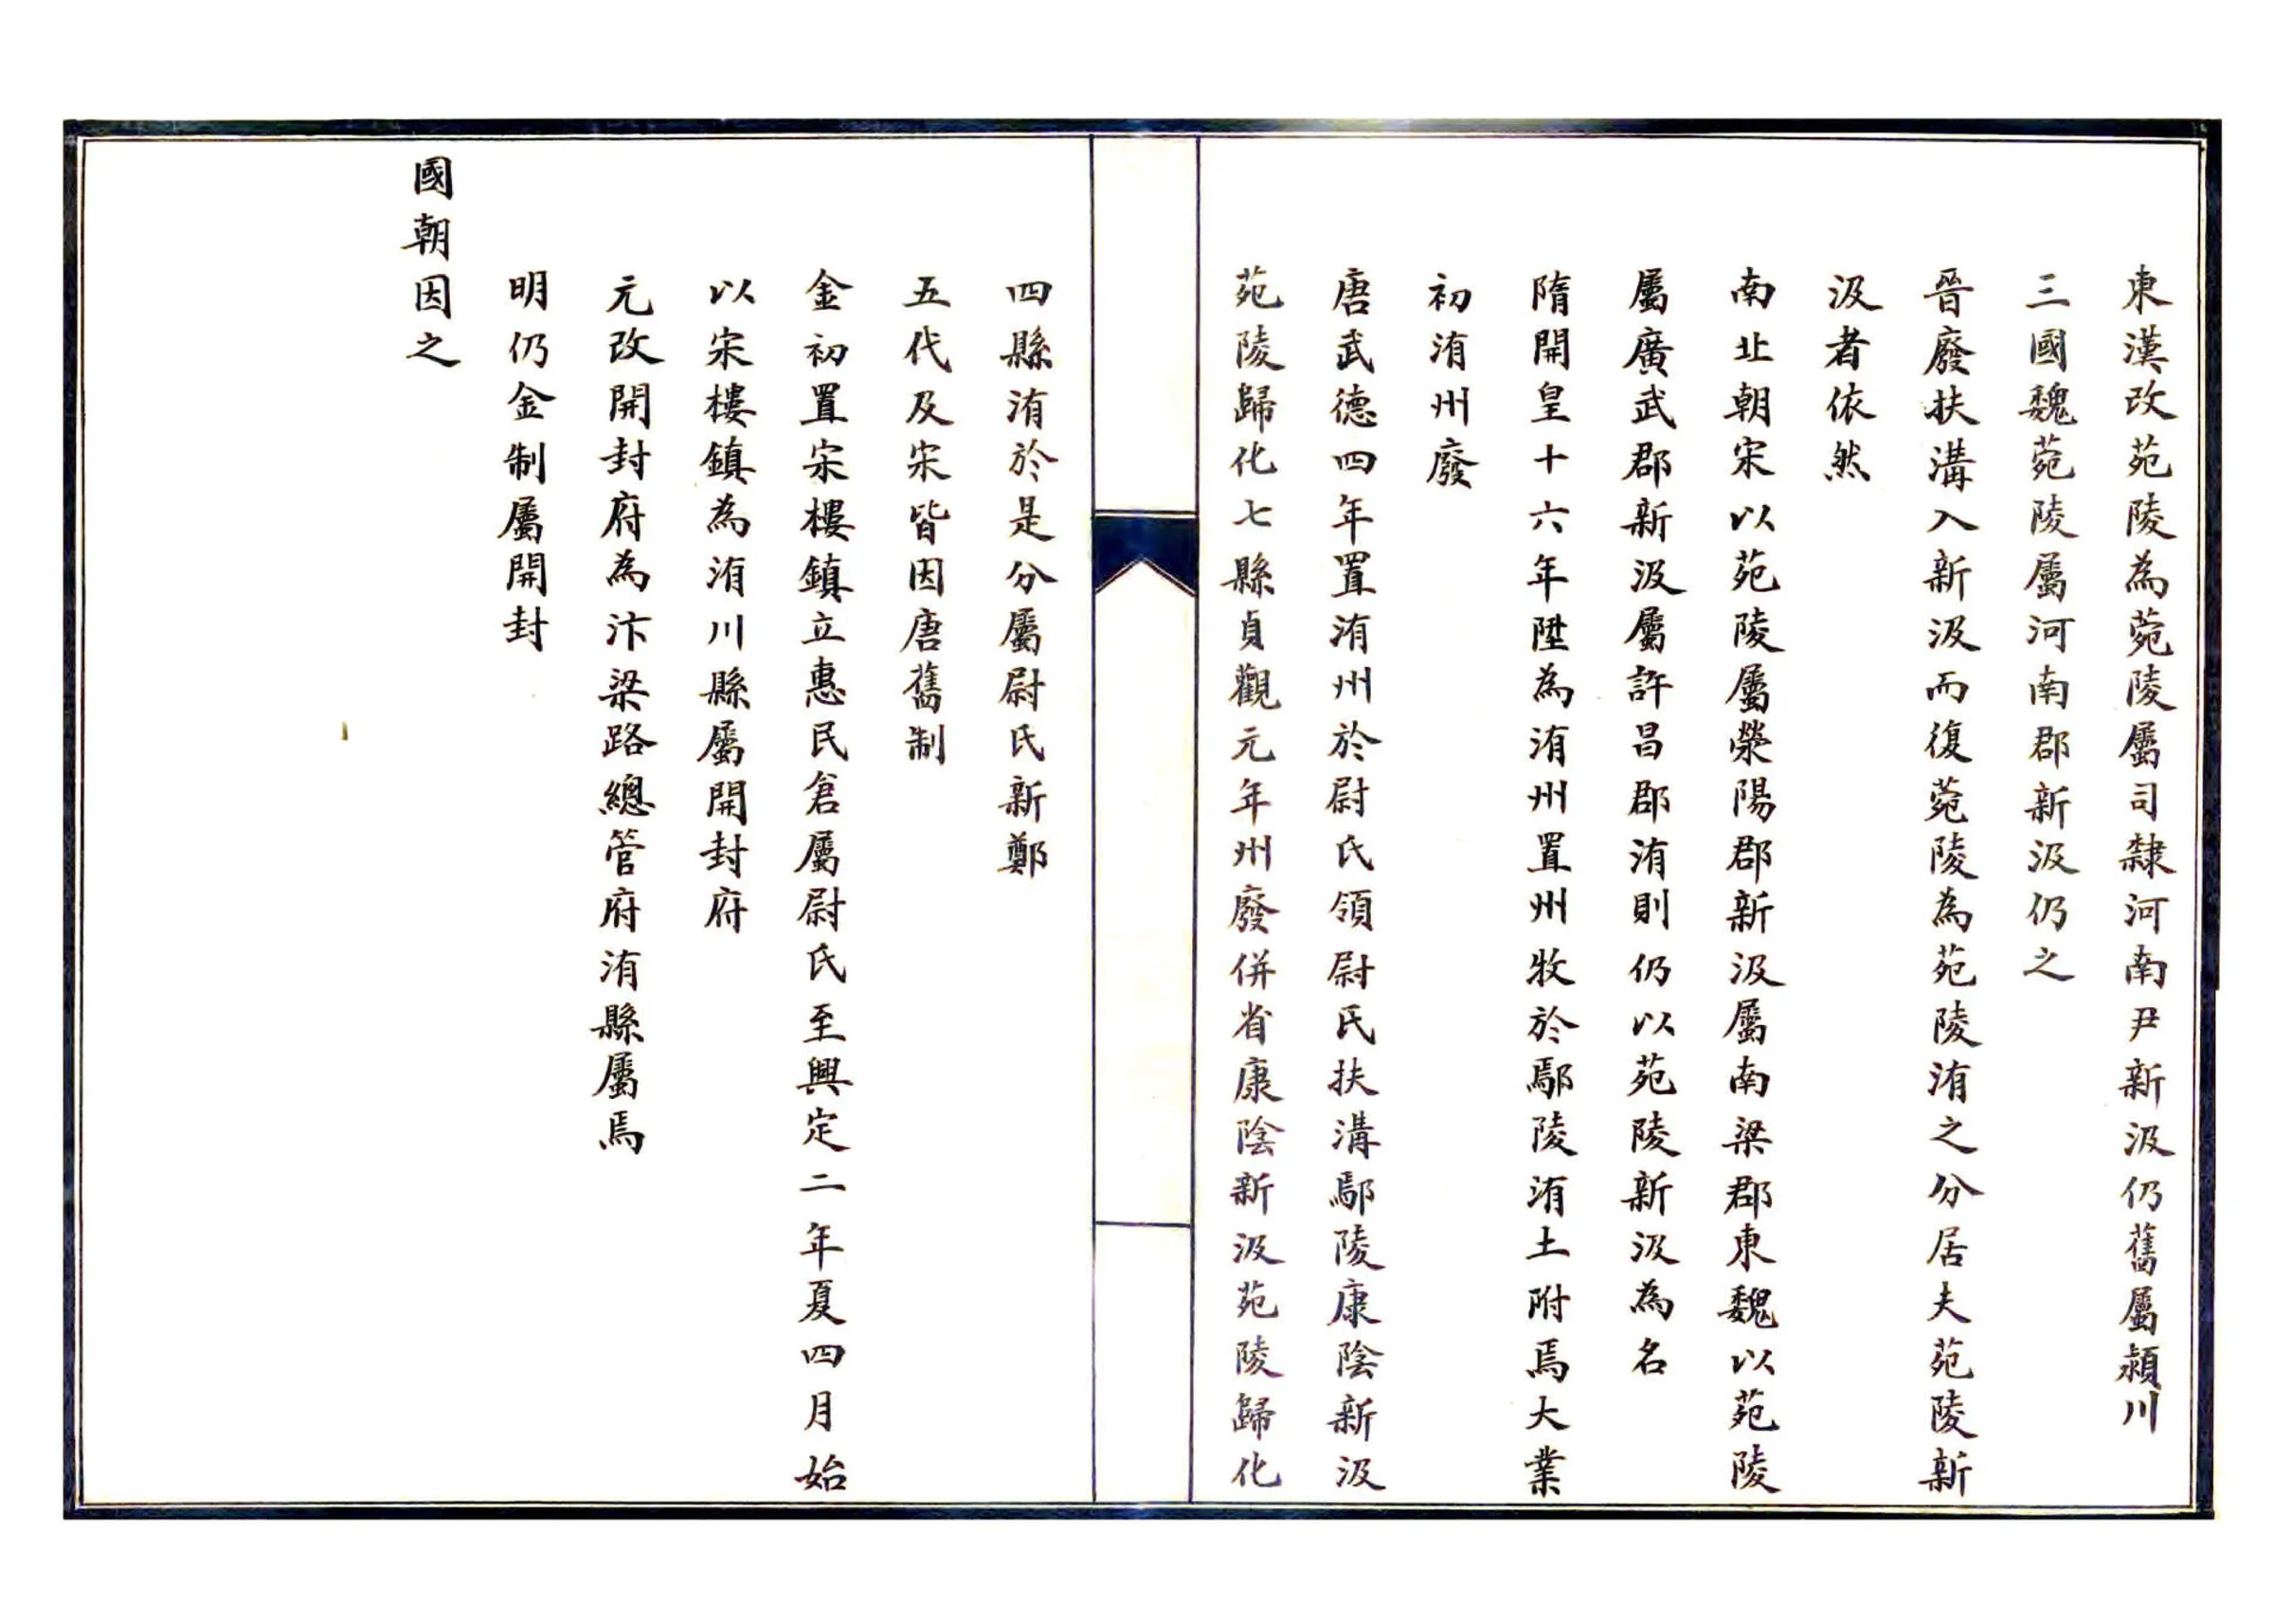 東漢改苑陵為菀陵屬司隸河南尹新汲仍舊屬潁川
三國魏菀陵屬河南郡新汲仍之
晉廢扶溝入新汲而復菀陵為苑陵洧之分居夫苑陵新
汲者依然
南北朝宋以苑陵屬滎陽郡新汲屬南梁郡東魏以苑陵
屬廣武郡新汲屬許昌郡洧則仍以苑陵新汲為名
隋開皇十六年陞為洧州置州牧於鄢陵洧土附焉大業
初洧州廢
唐武德四年置洧州於尉氏領尉氏扶溝鄢陵康陰新汲
苑陵歸化七縣貞觀元年州廢併省康陰新汲苑陵歸化
四縣洧於是分屬尉氏新鄭
五代及宋皆因唐舊制
金初置宋樓鎮立惠民倉屬尉氏至興定二年夏四月始
以宋樓鎮為洧川縣屬開封府
元改開封府為汴梁路總管府洧縣屬焉
明仍金制屬開封
國朝因之